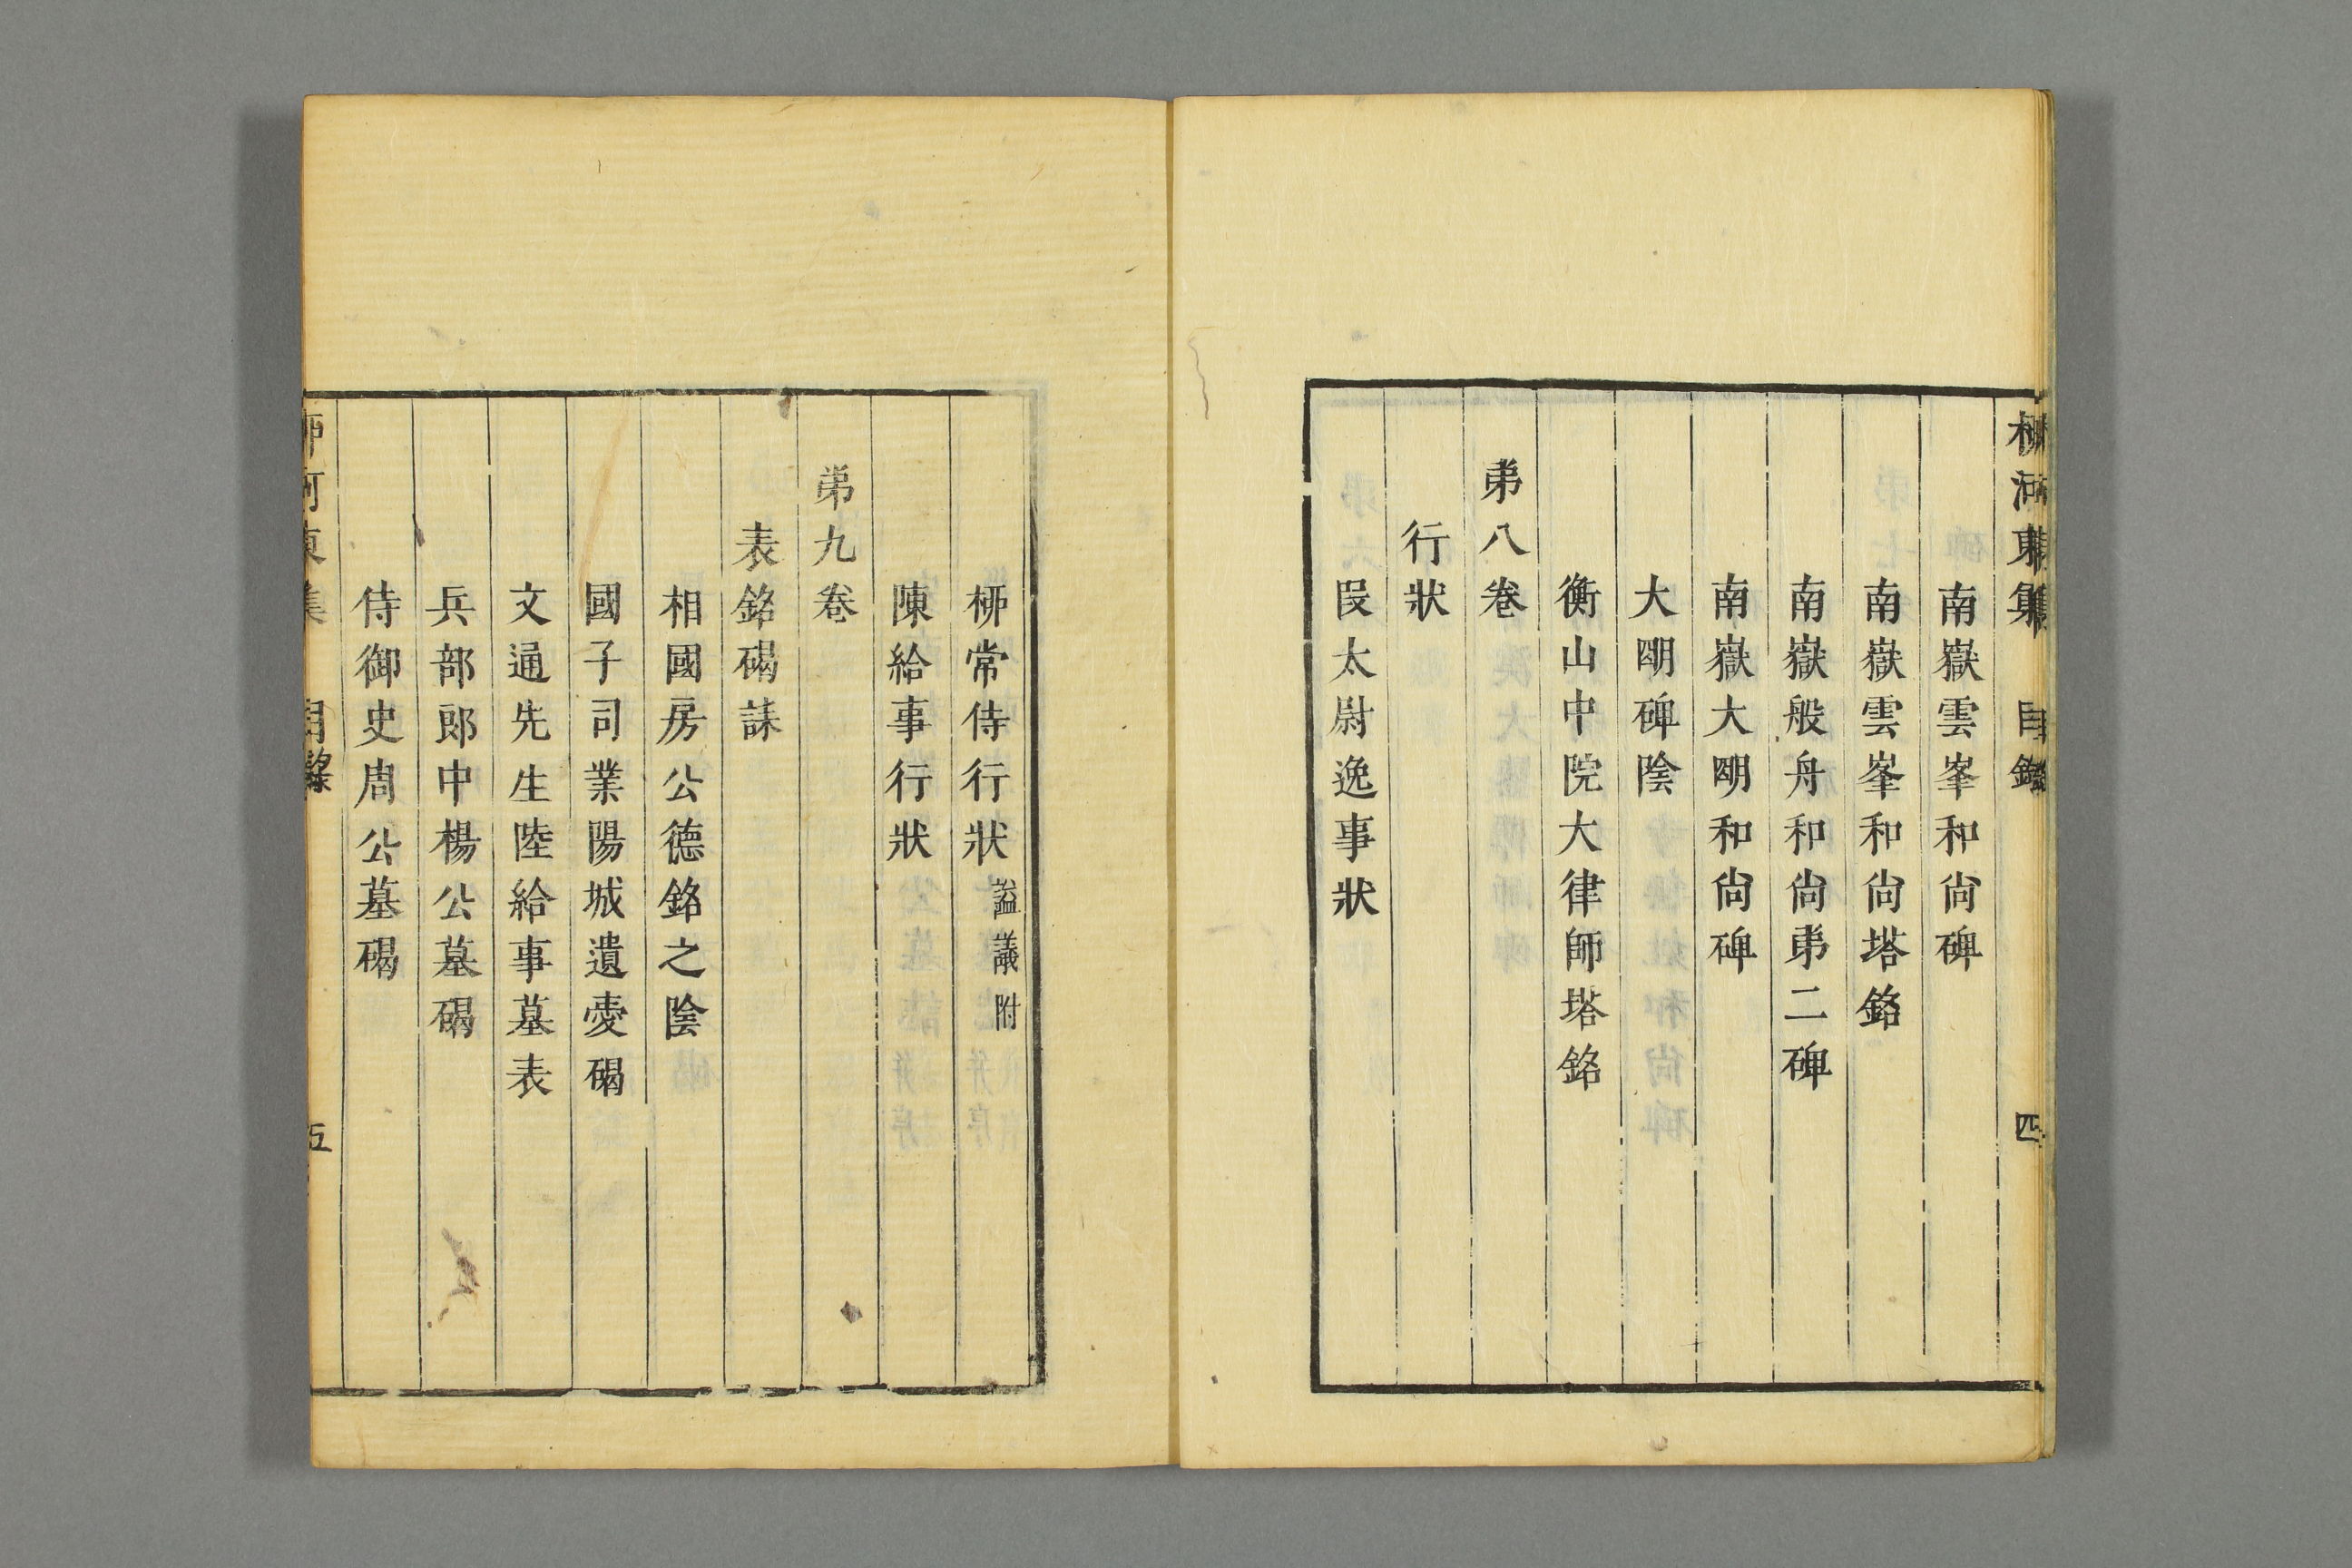 柳河東集 目錄 四
南嶽雲峯和尙碑
南嶽雲峯和尙塔銘
南嶽般舟和尙弟二碑
南嶽大朙和尙碑
大朙碑陰
衡山中院大律師塔銘
弟八卷
行狀
段太尉逸事狀
柳常侍行狀謚議附
陳給事行狀
弟九卷
表銘碣誄
相國房公德銘之陰
國子司業陽城遺愛碣
文通先生陸給事墓表
兵部郎中楊公墓碣
侍御史周公墓碣
柳河東集 目錄 五